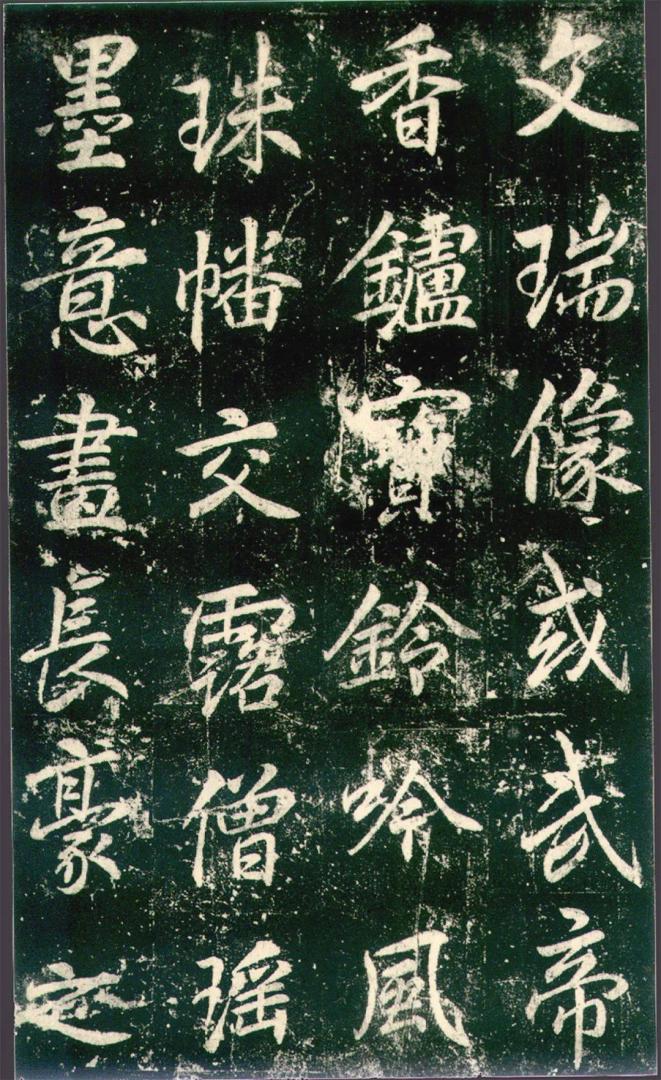 文瑞像或武帝
香鑪寶鈴吟風
珠幡交露僧瑶
墨意畫長豪定